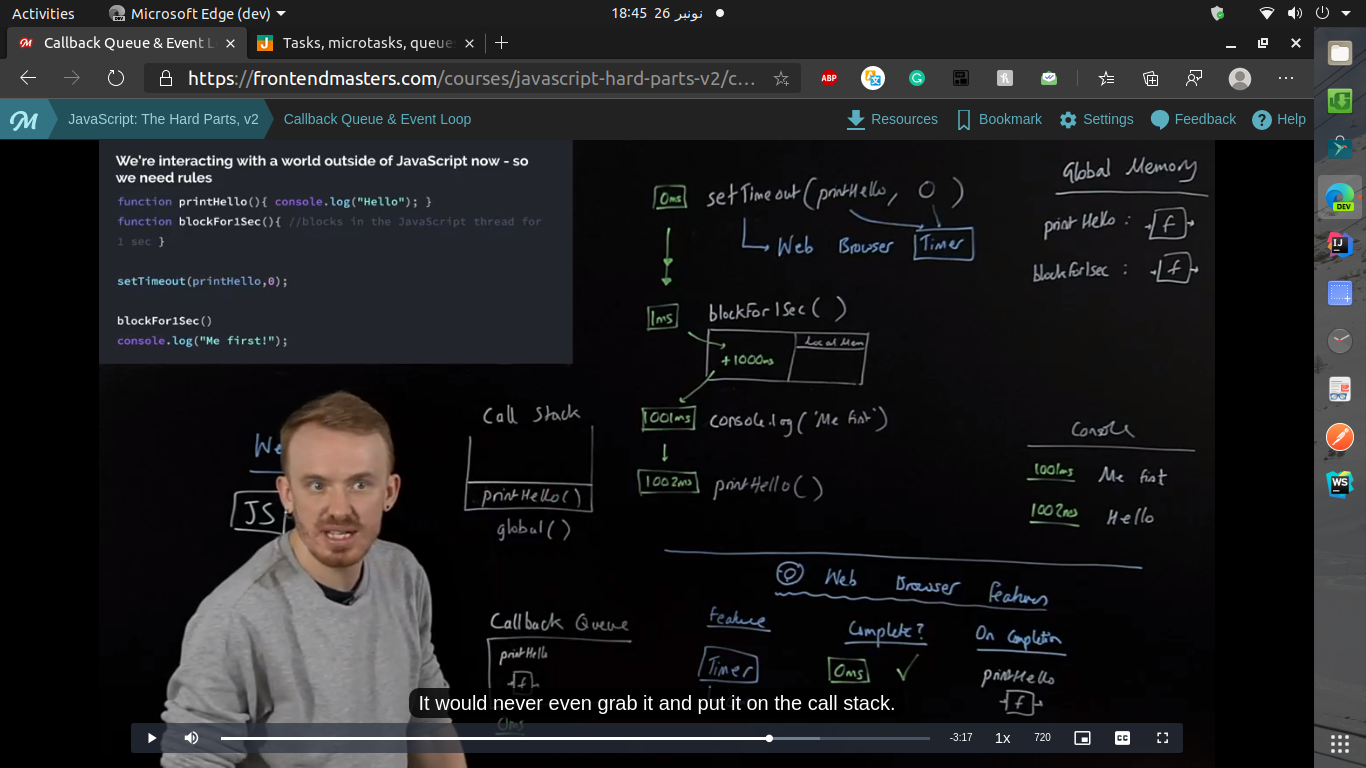 Activities
Microsoft Edge (dev)
18:45 26 نونبر
Callback Queue & Event L
Tasks, microtasks, queues
https://frontendmasters.com/courses/javascript-hard-parts-v2/c...
ABP
JavaScript: The Hard Parts, v2
Callback Queue & Event Loop
Resources
Bookmark
Settings
Feedback
Help
We're interacting with a world outside of JavaScript now - so
we need rules
function printHello(){ console.log("Hello"); }
function blockFor1Sec(){ //blocks in the JavaScript thread for
1 sec }
setTimeout(printHello,0);
blockFor1Sec()
console.log("Me first!");
0ms setTimeout(printHello, 0)
Web Browser Timer
1ms blockFor1Sec()
Local Mem
+1000ms
1001ms console.log('Me first')
1002ms printHello()
Global Memory
printHello: f
blockFor1sec: f
Console
1001ms Me first
1002ms Hello
We
JS
Call Stack
printHello()
global()
Callback Queue
printHello
f
0ms
Web Browser Features
Feature Complete? On Completion
Timer 0ms ✓ printHello
f
It would never even grab it and put it on the call stack.
-3:17
1x
720
CC
DEV
IJ
WS